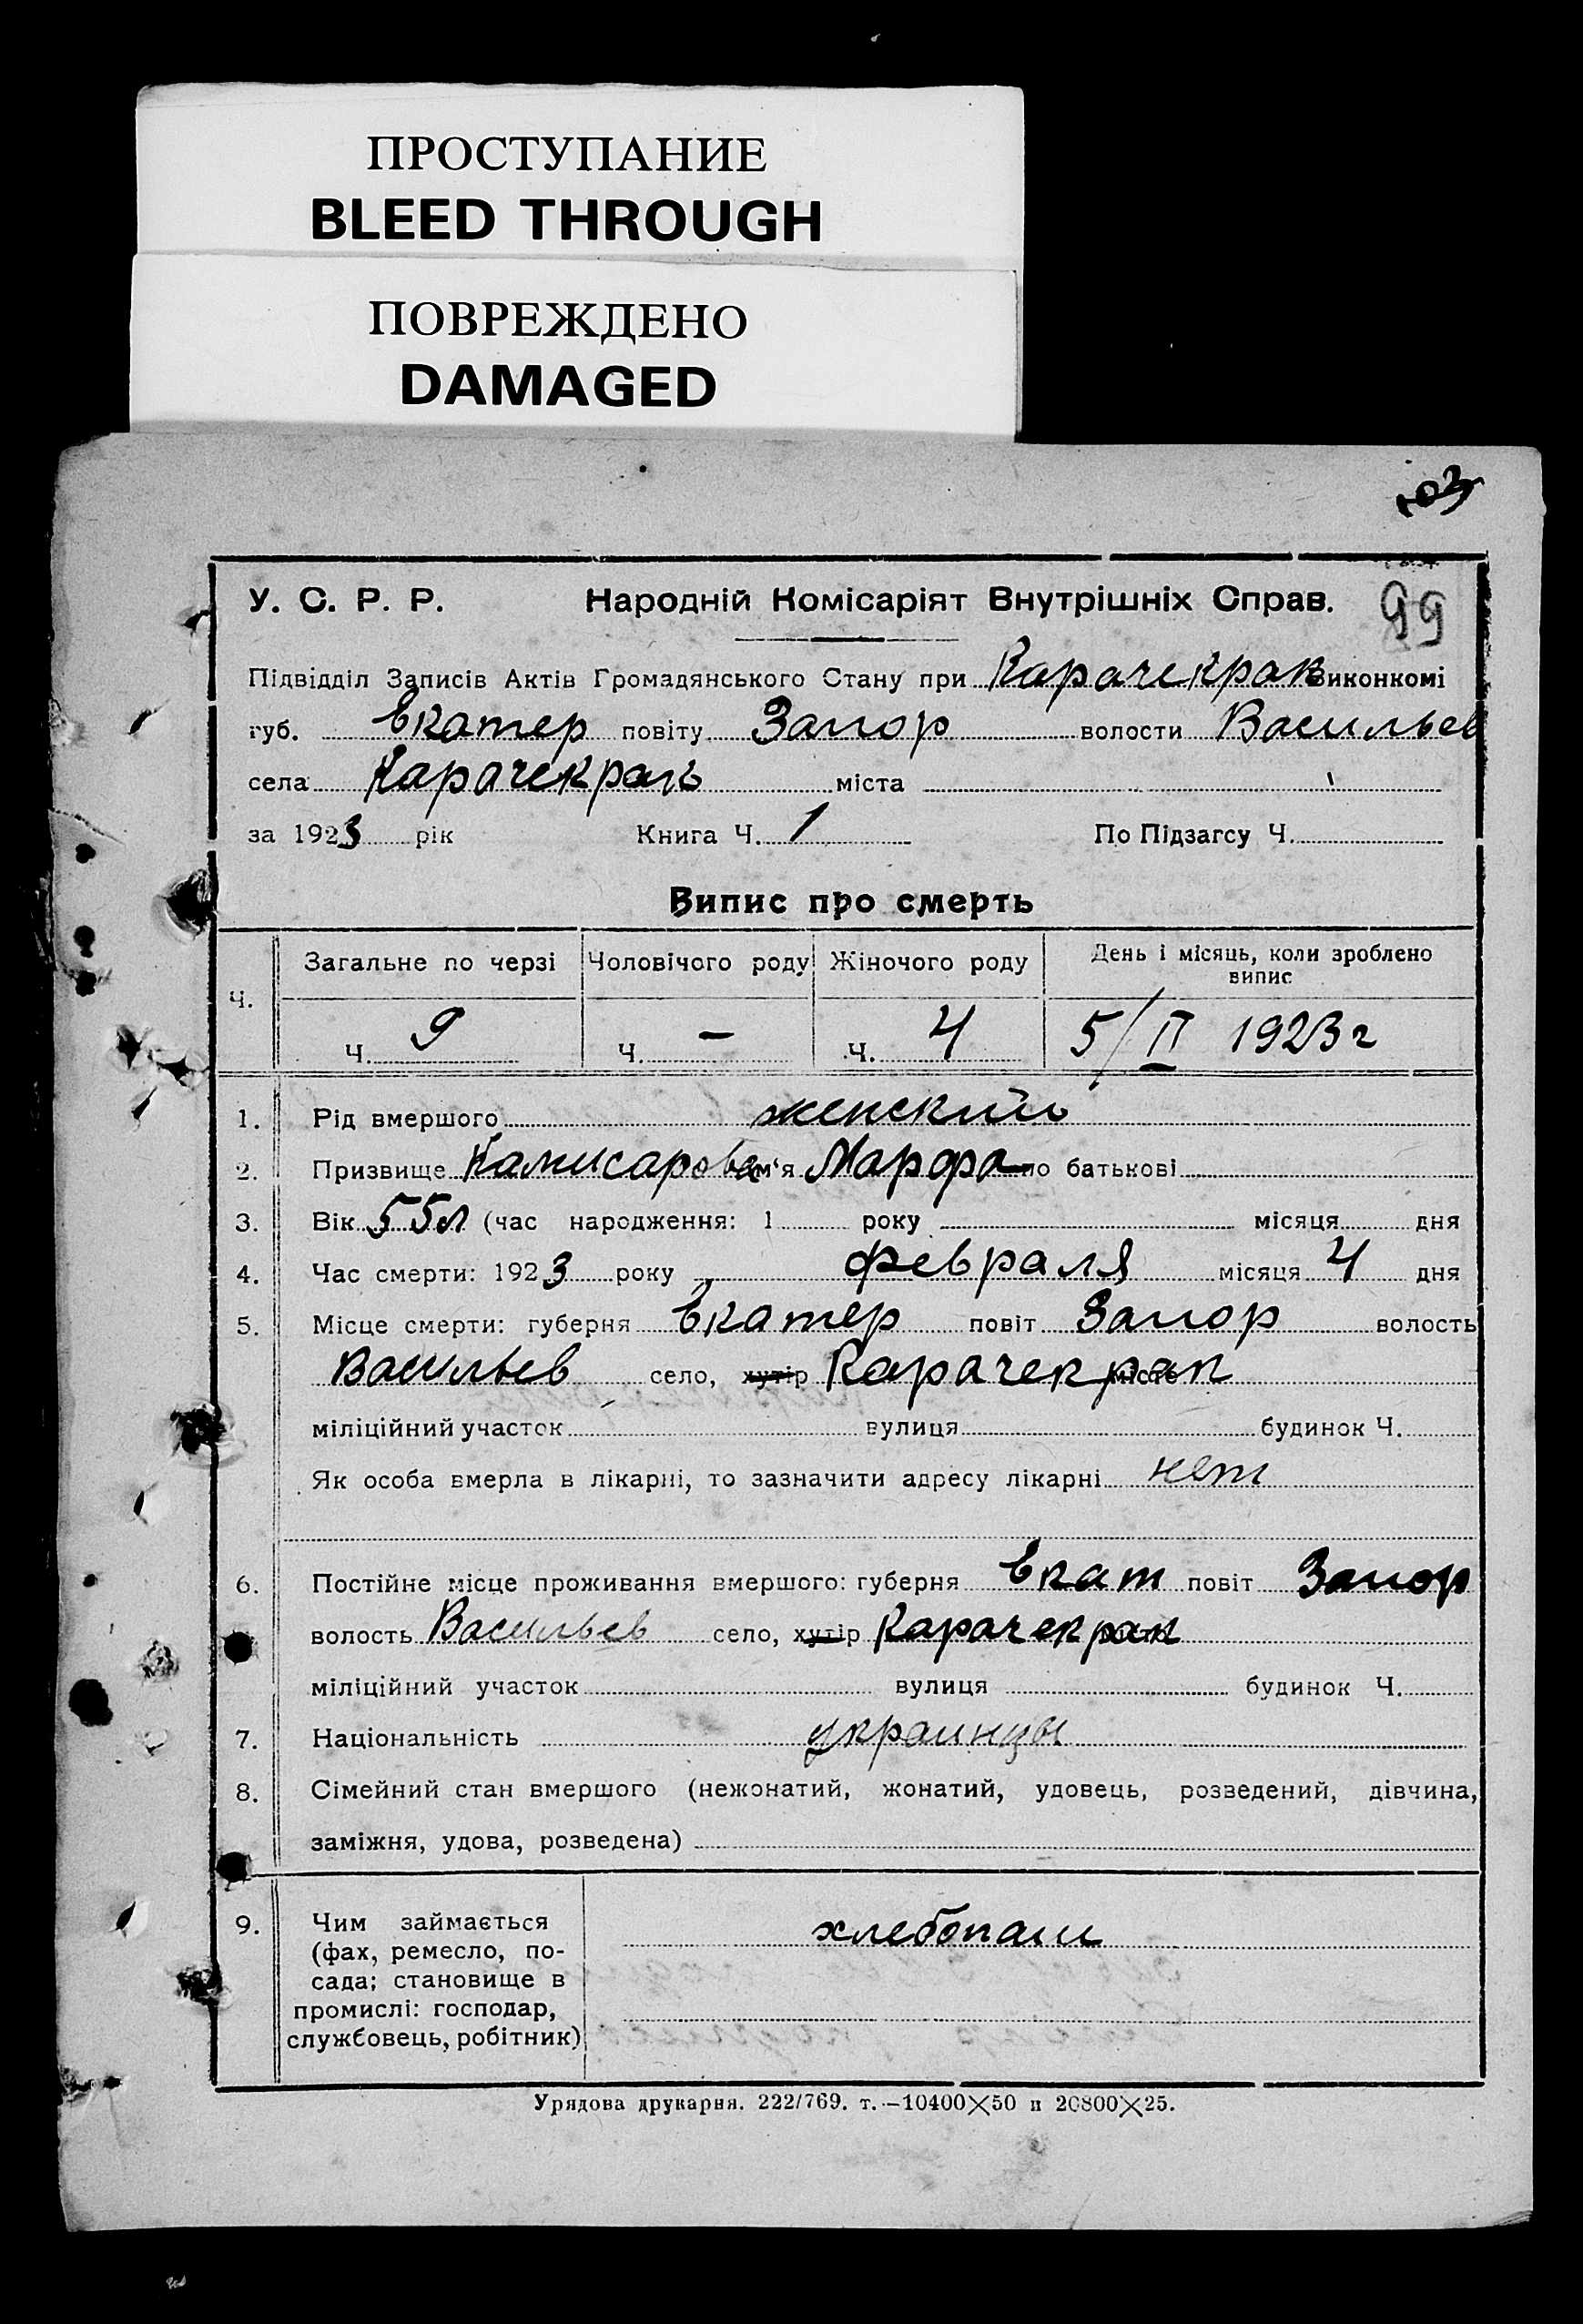 ПРОСТУПАНИЕ
BLEED THROUGH
ПОВРЕЖДЕНО
DAMAGED
103
У. С. Р. Р. Народній Комісаріят Внутрішніх Справ. 99
Підвідділ Записів Актів Громадянського Стану при Карачекрак Виконкомі
губ. Екатер повіту Запор волости Васильев
села Карачекракъ міста
за 1923 рік Книга Ч. 1 По Підзагсу Ч.
Випис про смерть
Ч. Загальне по черзі Чоловічого роду Жіночого роду День і місяць, коли зроблено випис
Ч. 9 Ч. — Ч. 4 5/II 1923 г
1. Рід вмершого женский
2. Призвище Камисарова им'я Марфа по батькові
3. Вік 55 л (час народження: 1 року місяця дня
4. Час смерти: 1923 року февраля місяця 4 дня
5. Місце смерти: губерня Екатер повіт Запор волость
Васильев село, хутір Карачекрак місто
міліційний участок вулиця будинок Ч.
Як особа вмерла в лікарні, то зазначити адресу лікарні нет
6. Постійне місце проживання вмершого: губерня Екат повіт Запор
волость Васильев село, хутір Карачекрак
міліційний участок вулиця будинок Ч.
7. Національність украинцы
8. Сімейний стан вмершого (нежонатий, жонатий, удовець, розведений, дівчина,
заміжня, удова, розведена)
9. Чим займається хлебопаш
(фах, ремесло, по-
сада; становище в
промислі: господар,
службовець, робітник)
Урядова друкарня. 222/769. т.—10400×50 п 20800×25.